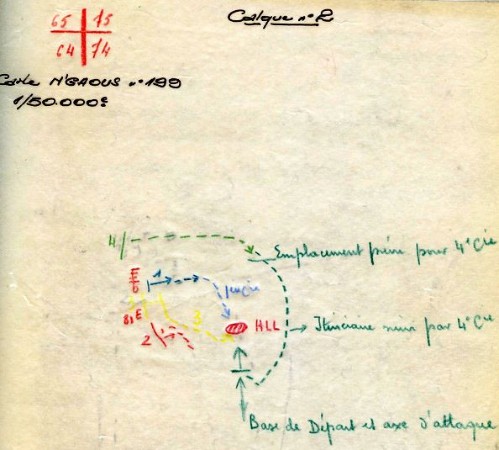 Calque n° 2
65 15
64 14
Carte N'GAOUS n° 199
1/50.000e
4/
Emplacement prévu pour 4° Cie
1
8, E
3
2
HLL
Itinéraire suivi par 4° Cie
Base de Départ et axe d'attaque